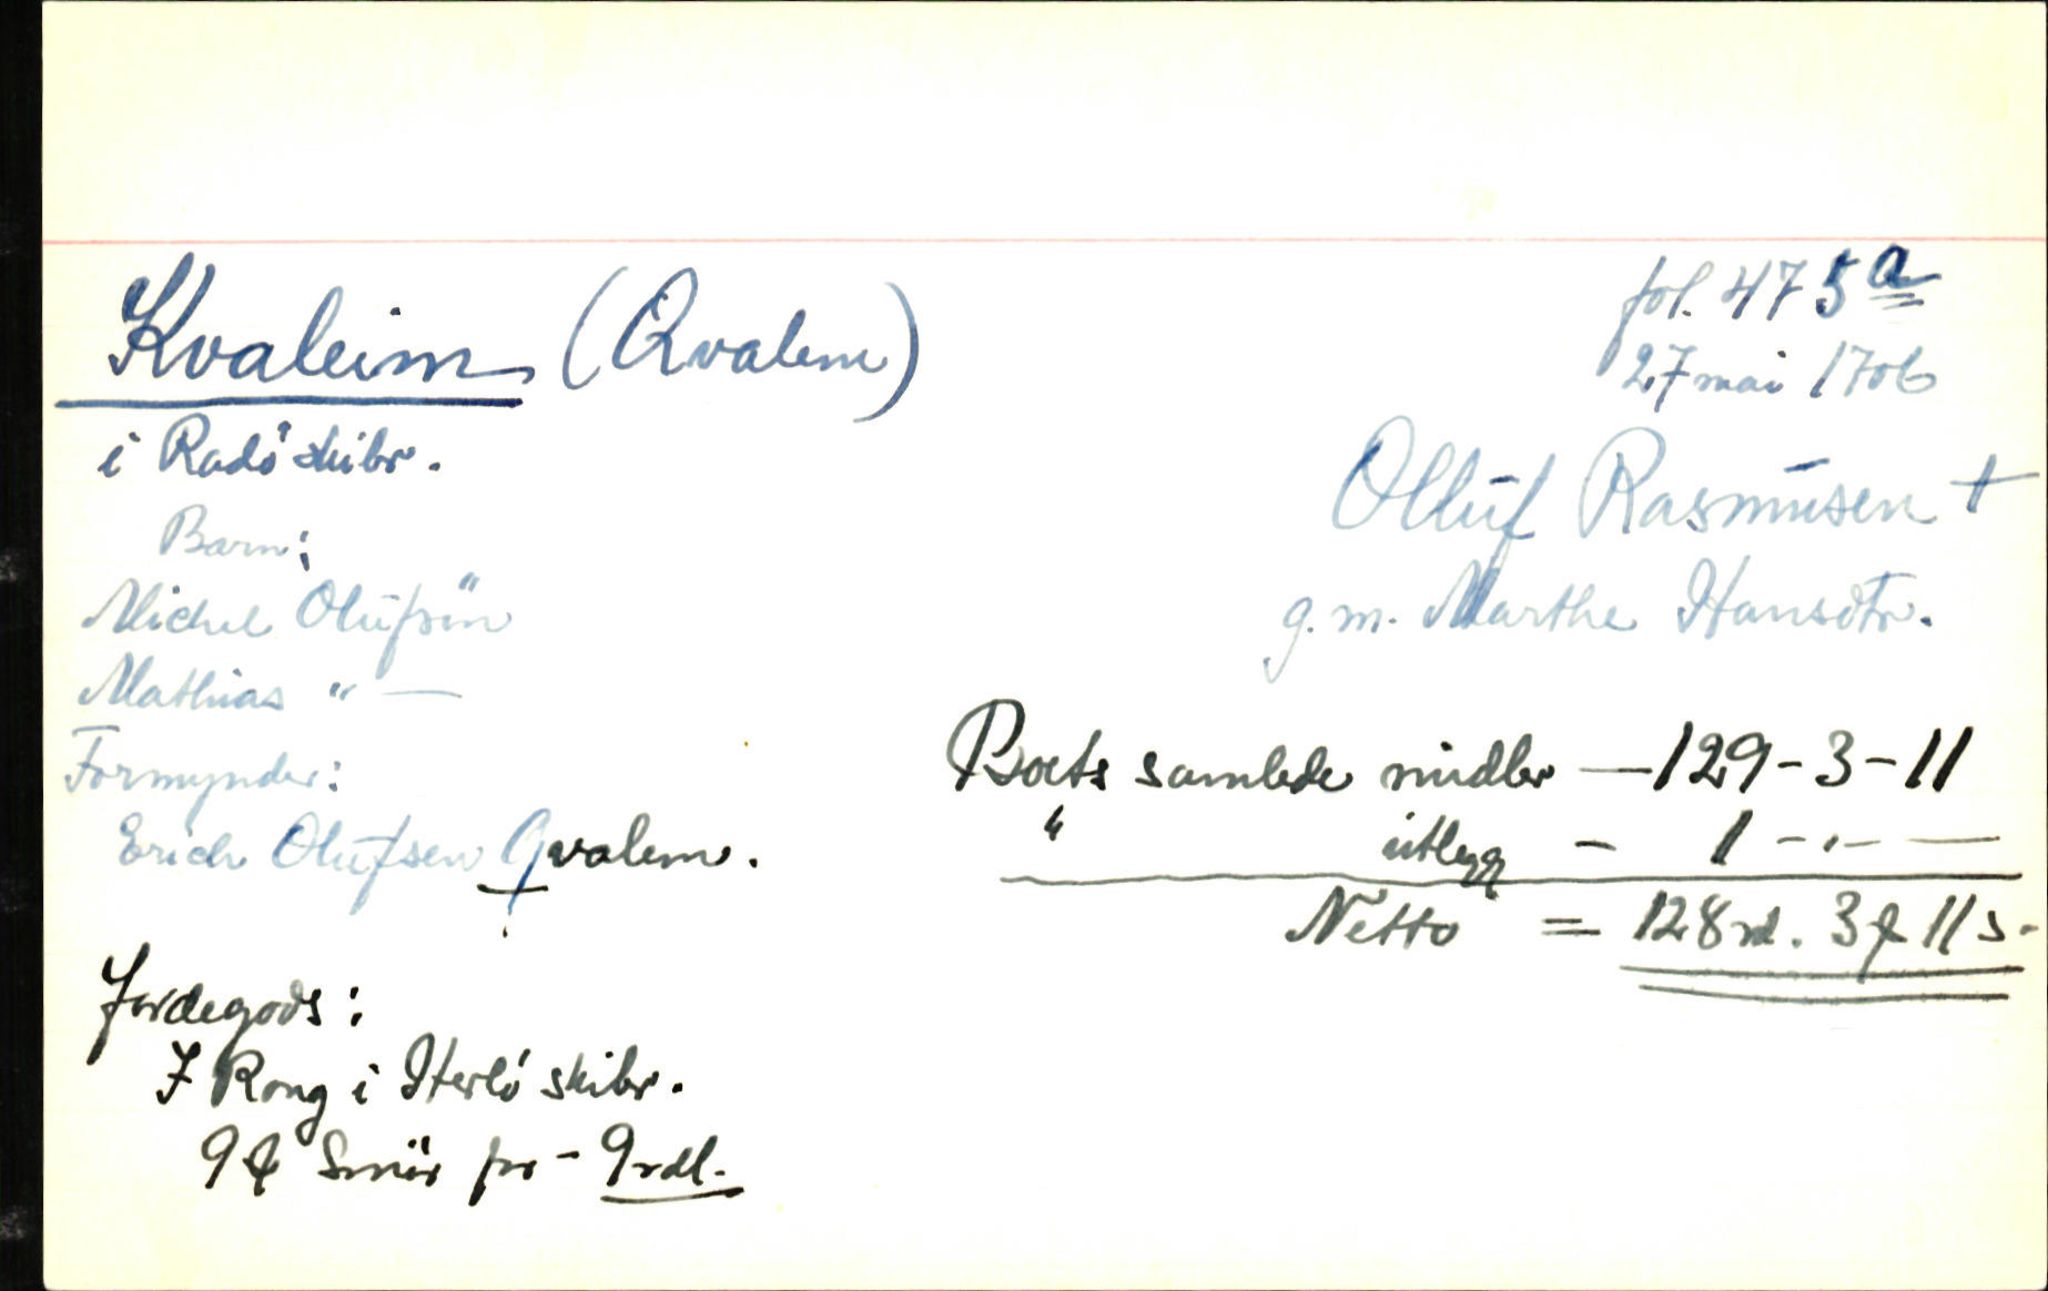 Kvaleim (Qvalem)
i Radö skibr.
Barn:
Michel Olüfsön
Mathias " —
Formynder:
Erich Olufsen Qvalem.
Jordegods:
I Rong i Herlö skibr.
9 Smör for - 9 rdl.
fol. 475 a
27 mai 1706
Olluf Rasmusen +
g. m. Marthe Hansdtr.
Boets samlede midler — 129 - 3 - 11
" utlegg - 1 - " - —
Netto = 128 rd. 3 11 s.